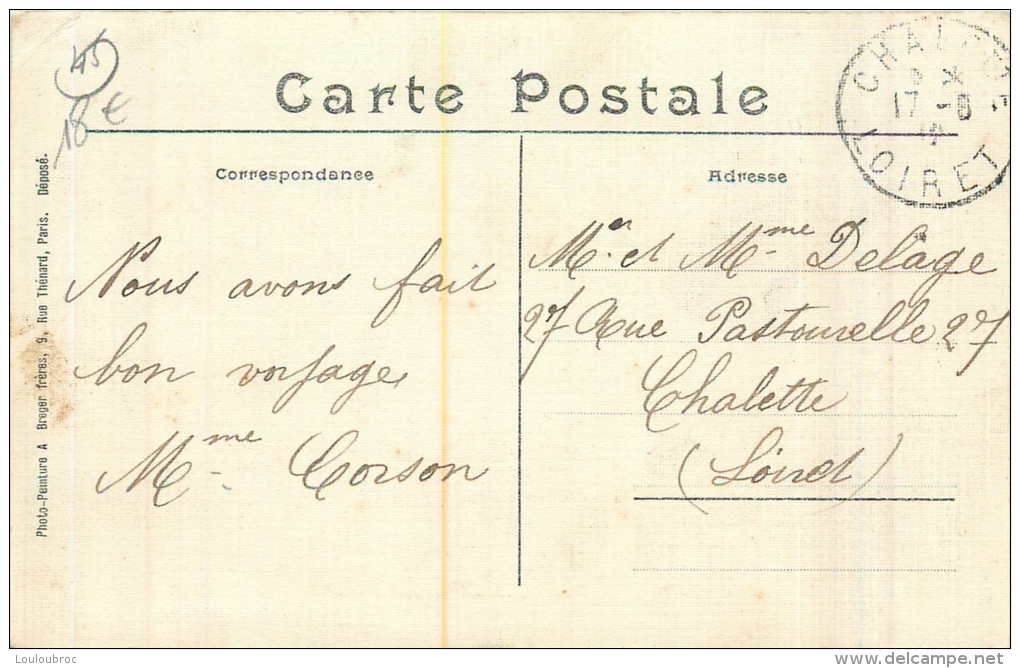 45
18€
Carte Postale
CHALETTE
17 -8
LOIRET
Correspondance
Adresse
Nous avons fait
bon voyage
Mme Corson
Mr et Mme Delage
27 Rue Pastourelle 27
Chalette
(Loiret)
Photo-Peinture A Breger frères, 9, Rue Thénard, Paris. Déposé.
Louloubroc
www.delcampe.net